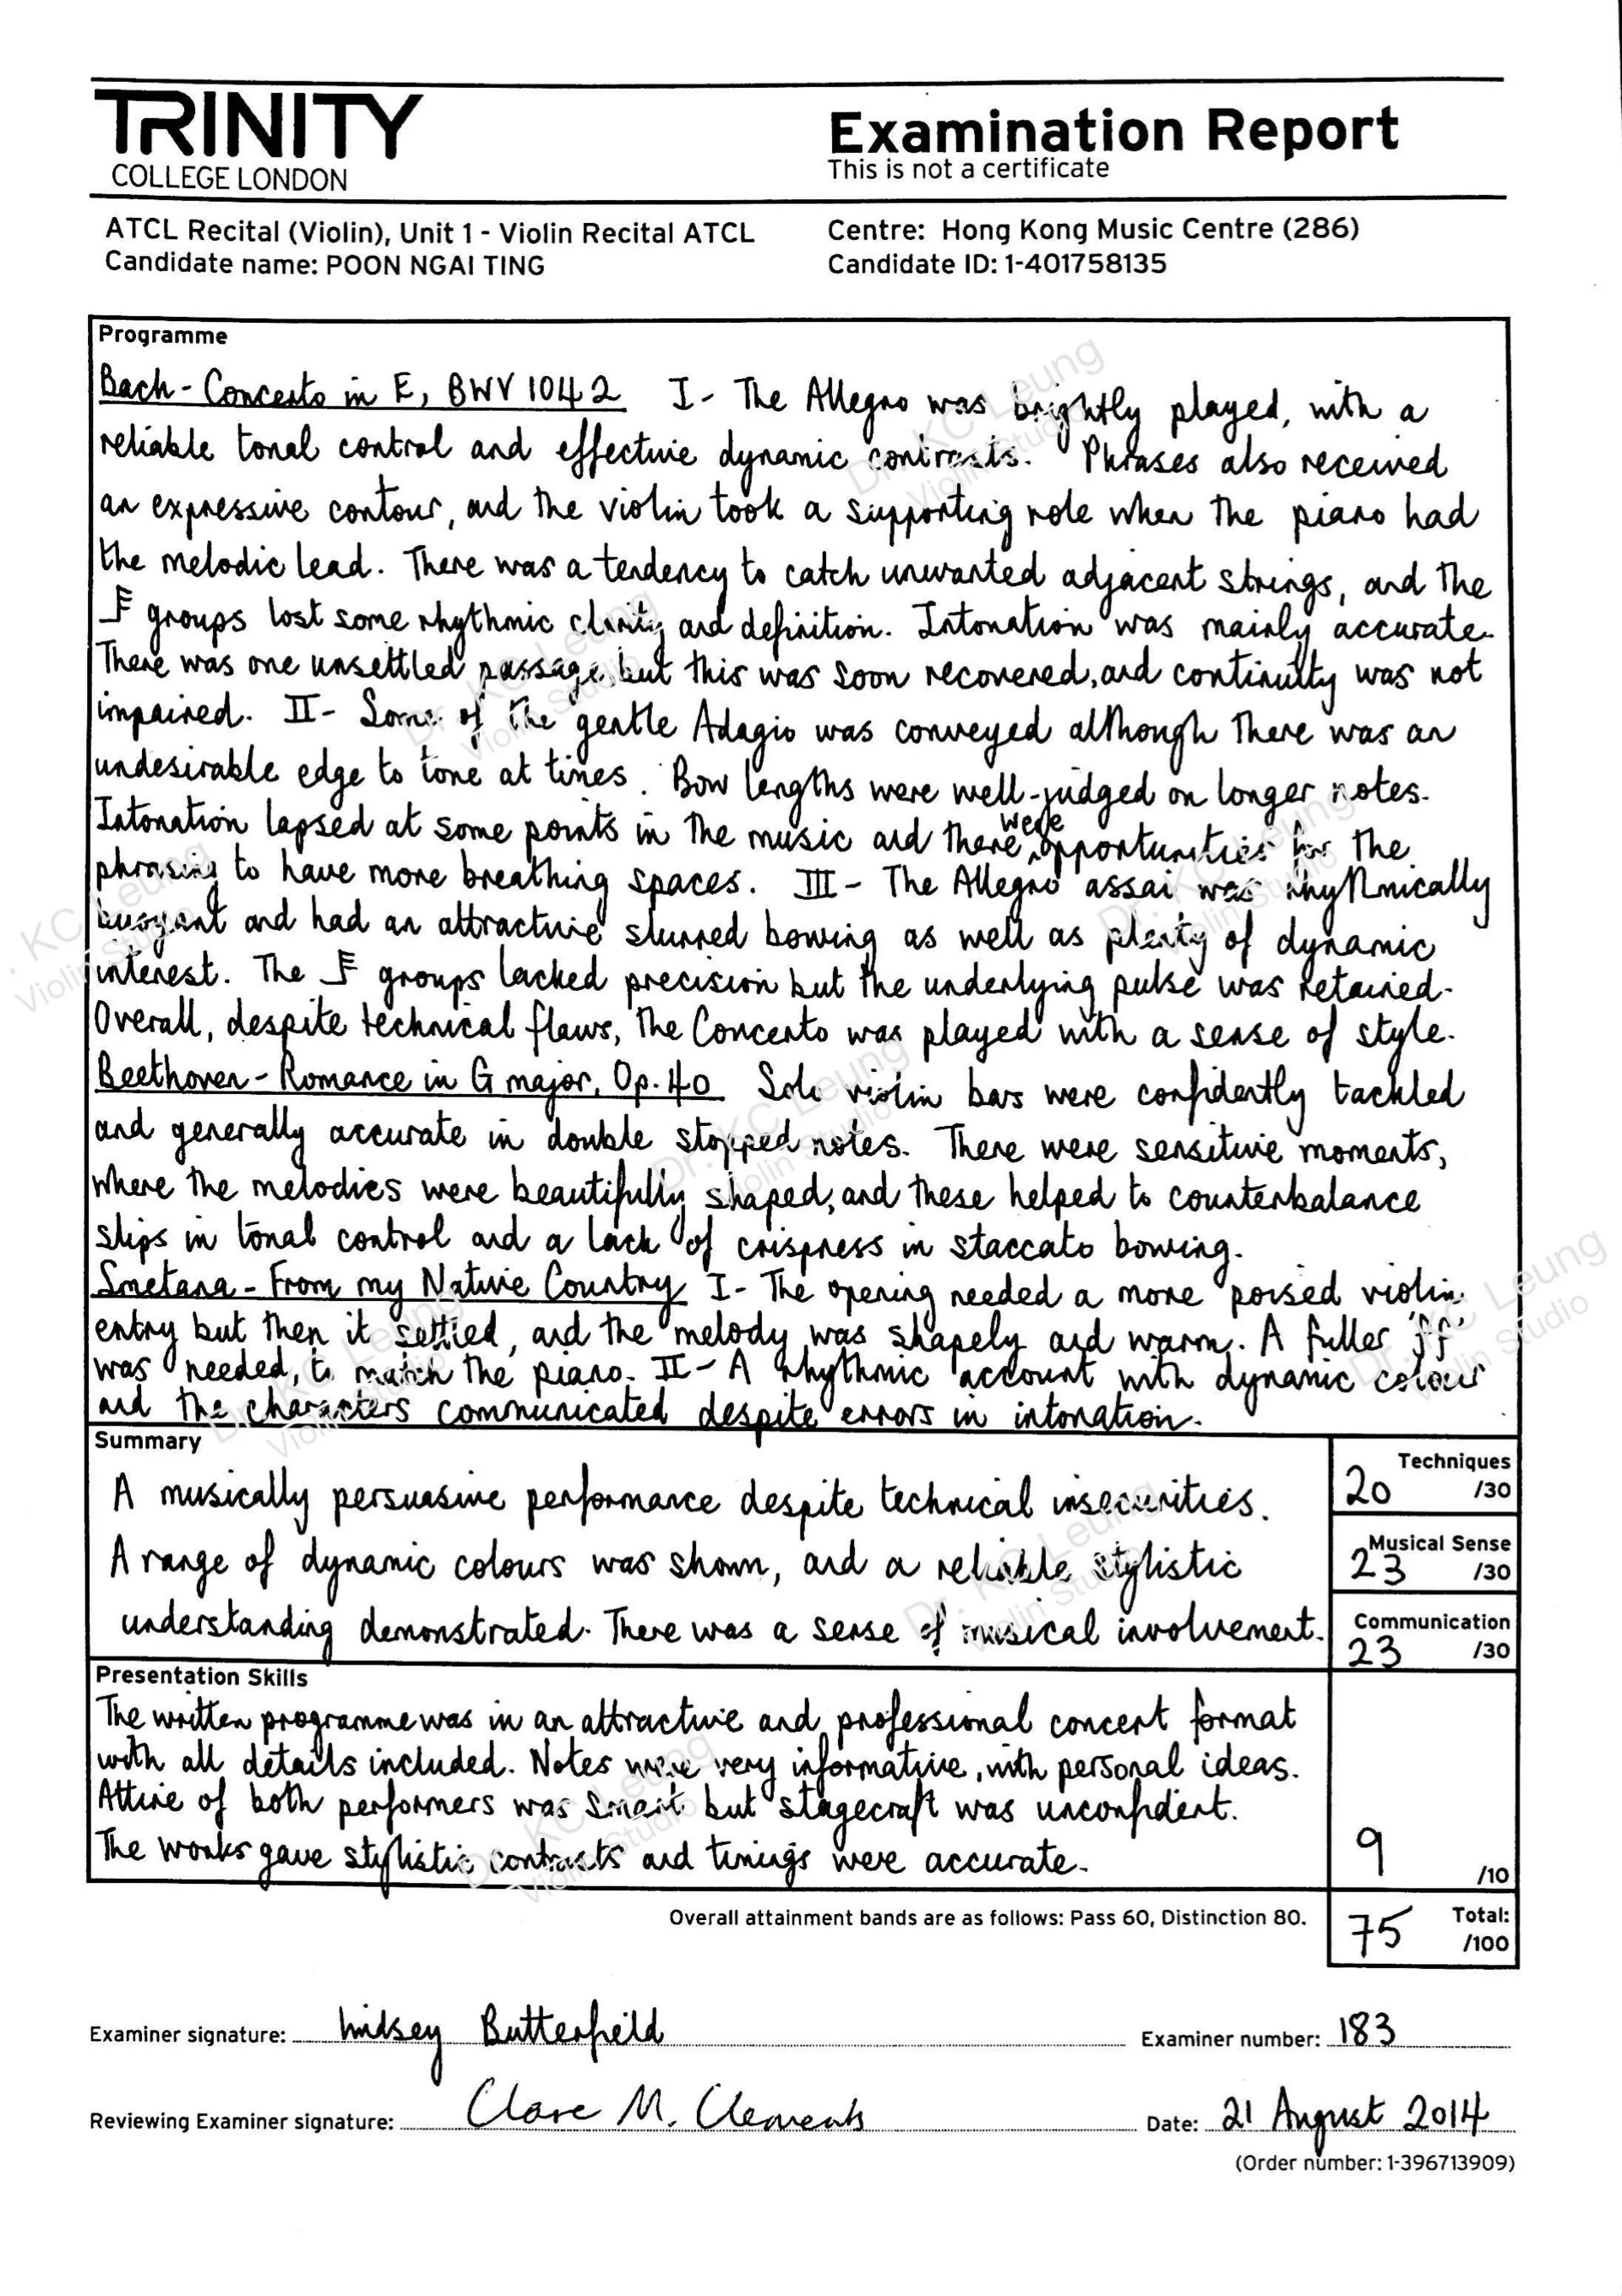 TRINITY
COLLEGE LONDON
Examination Report
This is not a certificate
ATCL Recital (Violin), Unit 1 - Violin Recital ATCL
Candidate name: POON NGAI TING
Centre: Hong Kong Music Centre (286)
Candidate ID: 1-401758135
Programme
Bach - Concerto in E, BWV 1042 I - The Allegro was brightly played, with a
reliable tonal control and effective dynamic contrasts. Phrases also received
an expressive contour, and the violin took a supporting role when the piano had
the melodic lead. There was a tendency to catch unwanted adjacent strings, and the
groups lost some rhythmic clarity and definition. Intonation was mainly accurate.
There was one unsettled passage, but this was soon recovered, and continuity was not
impaired. II - Some of the gentle Adagio was conveyed although there was an
undesirable edge to tone at times. Bow lengths were well-judged on longer notes.
Intonation lapsed at some points in the music and there were opportunities for the
phrasing to have more breathing spaces. III - The Allegro assai was rhythmically
buoyant and had an attractive slurred bowing as well as plenty of dynamic
interest. The groups lacked precision but the underlying pulse was retained.
Overall, despite technical flaws, the Concerto was played with a sense of style.
Beethoven - Romance in G major, Op. 40 Solo violin bars were confidently tackled
and generally accurate in double stopped notes. There were sensitive moments,
where the melodies were beautifully shaped, and these helped to counterbalance
slips in tonal control and a lack of crispness in staccato bowing.
Smetana - From my Native Country I - The opening needed a more poised violin
entry but then it settled, and the melody was shapely and warm. A fuller 'ff'
was needed, to match the piano. II - A rhythmic account with dynamic colour
and the characters communicated despite errors in intonation.
Summary
A musically persuasive performance despite technical insecurities.
A range of dynamic colours was shown, and a reliable stylistic
understanding demonstrated. There was a sense of musical involvement.
Techniques
20 /30
Musical Sense
23 /30
Communication
23 /30
Presentation Skills
The written programme was in an attractive and professional concert format
with all details included. Notes were very informative, with personal ideas.
Attire of both performers was smart but stagecraft was unconfident.
The works gave stylistic contrasts and timings were accurate.
9 /10
Overall attainment bands are as follows: Pass 60, Distinction 80.
75 Total: /100
Examiner signature: Lindsey Butterfield
Examiner number: 183
Reviewing Examiner signature: Clare M. Clements
Date: 21 August 2014
(Order number: 1-396713909)
Dr. KC Leung
Violin Studio